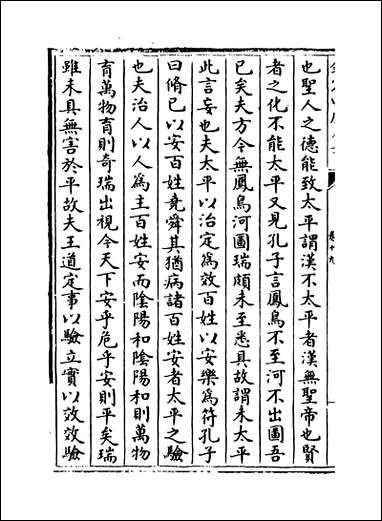 也聖人之德能致太平謂漢不太平者漢無聖帝也賢
者之化不能太平又見孔子言鳳鳥不至河不出圖吾
已矣夫方今無鳳鳥河圖瑞頗未至悉具故謂未太平
此言妄也夫太平以治定為效百姓以安樂為符孔子
曰脩已以安百姓堯舜其猶病諸百姓安者太平之驗
也夫治人以人為主百姓安而陰陽和陰陽和則萬物
育萬物育則奇瑞出視今天下安乎危乎安則平矣瑞
雖未具無害於平故夫王道定事以驗立實以效效驗
卷十九